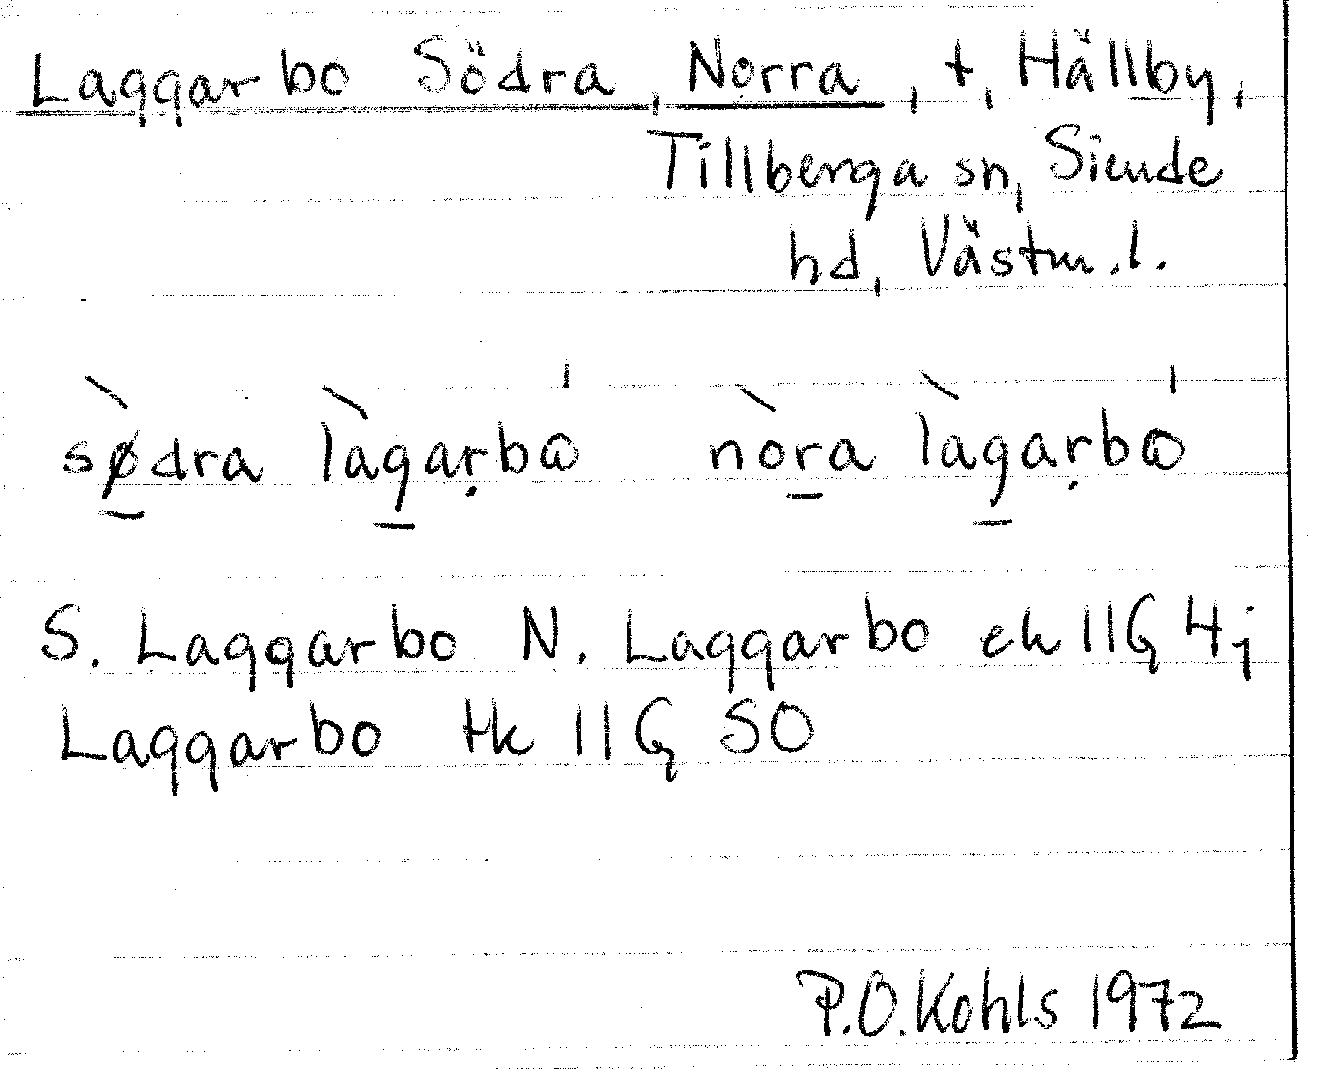 Laggarbo Södra, Norra, t, Hällby,
Tillberga sn, Siende
hd, Västm.l.
sø̀dra làgarbω nòra làgarbω
S. Laggarbo N. Laggarbo ek 11G 4j
Laggarbo tk 11G SO
P.O. Kohls 1972